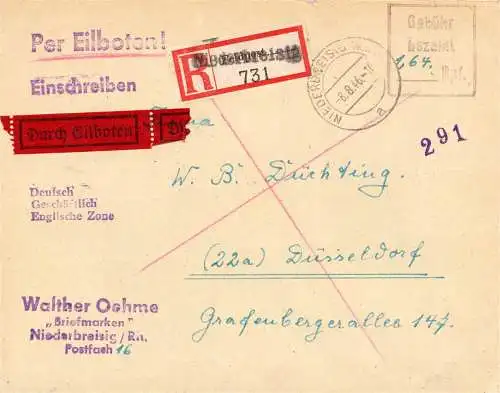 Per Eilboten!
Einschreiben
R
731
NIEDERBREISIG
-8.8.46.-
a
Gebühr
bezahlt
1,64.
Rpf.
Durch Eilboten
291
W. B. Düchting.
Deutsch
Geschäftlich
Englische Zone
(22a) Düsseldorf
Grafenbergerallee 147.
Walther Oehme
„Briefmarken"
Niederbreisig/Rh.
Postfach 16